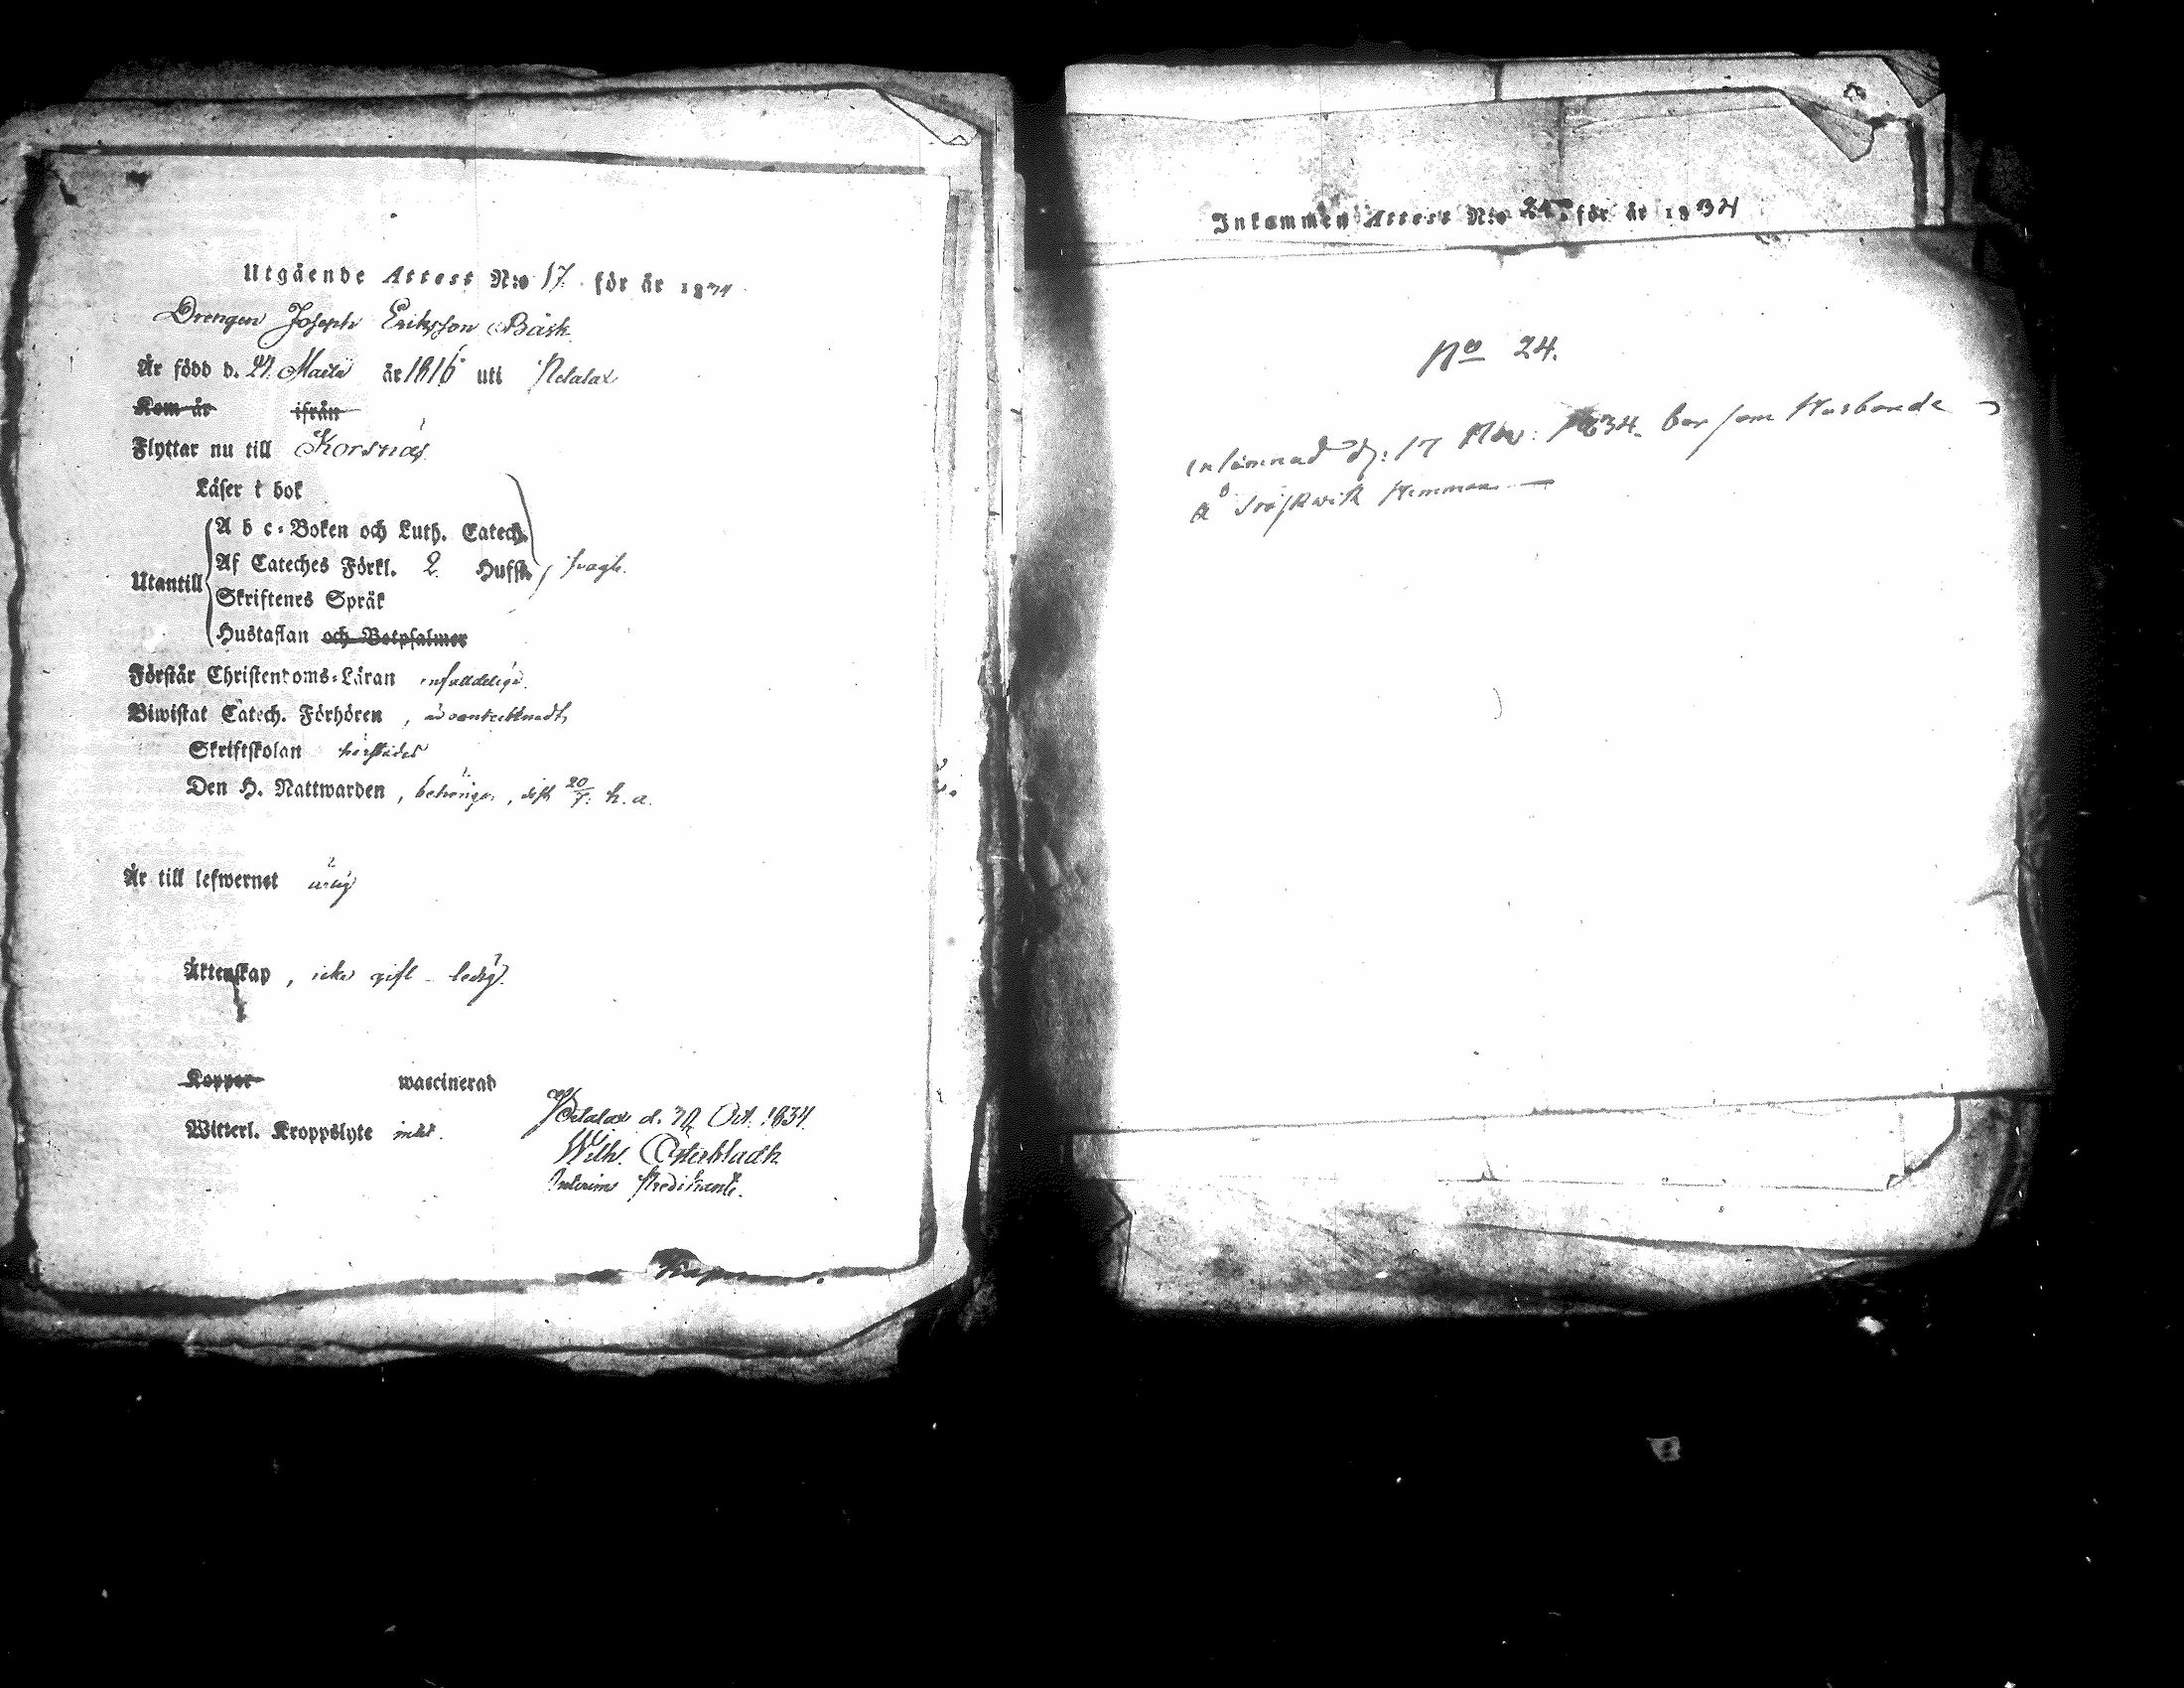 Utgående Attest N:o 17. för år 1834
Drengen Joseph Eriksson Bäck
Är född d. 21. Martii år 1816 uti Petalax
Kom år ifrån
Flyttar nu till Korsnäs
Läser i bok
A b c-Boken och Luth. Catech.
Af Cateches Förkl. 2. Hufst. svagt.
Utantill
Skriftenes Språk
Hustaflan och Botpsalmer
Förstår Christendoms-Läran enfaldeligen.
Biwistat Catech. Förhören, oantecknadt,
Skriftskolan härstädes
Den H. Nattwarden, behörigen, sist 20/7. h. a.
Är till lefwernet ärlig
Äktenskap, icke gift - ledig.
Koppor waccinerad
Witterl. Kroppslyte intet.
Petalax d. Oct. 1834.
Wilh. Österbladh
Interims Predikant.
Inkommen Attest N:o 24. för år 1834
No 24.
Inlämnad d. 17 Nov. 1834. bor som Husbonde
å Hemman